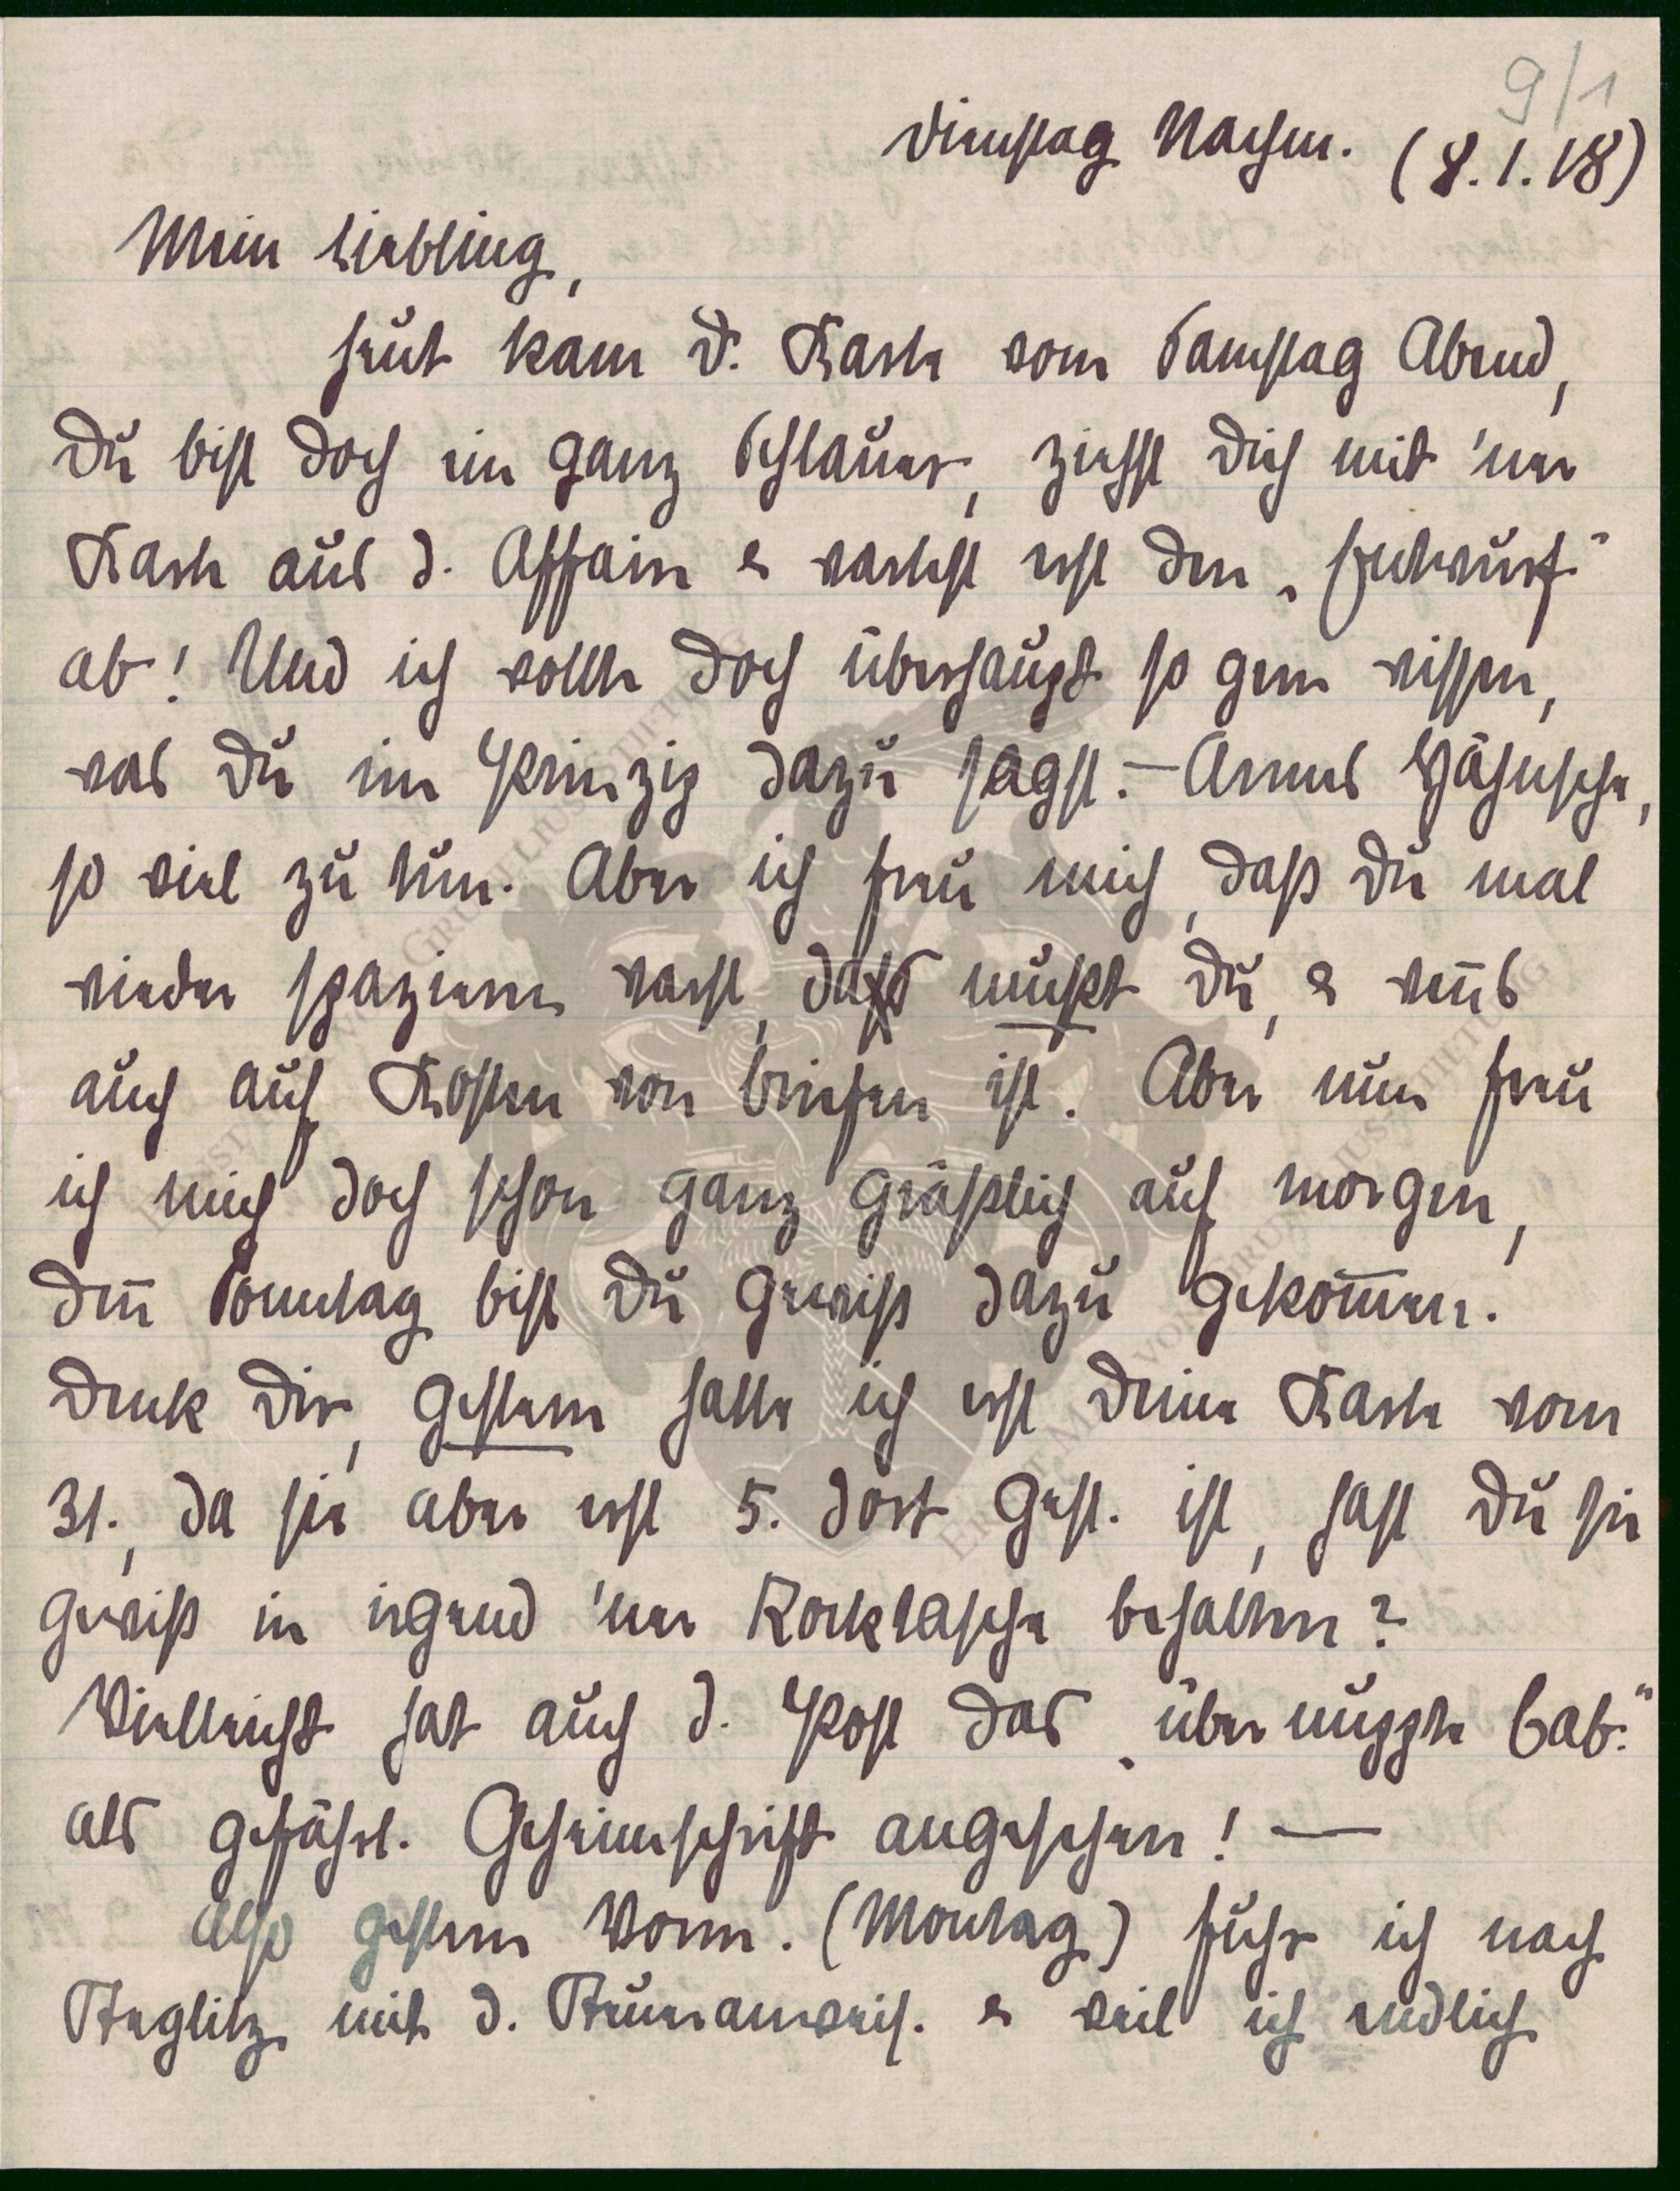 9/1
Dienstag Nachm. (8.1.18)
Mein Liebling,
heut kam D. Karte vom Samstag Abend,
Du bist doch ein ganz Schlauer, ziehst Dich mit 'ner
Karte aus d. Affaire & wartest erst den „Entwurf"
ab! Und ich wollte doch überhaupt so gern wissen,
was Du im Prinzip dazu sagst. – Armes Hähnsche,
so viel zu tun. Aber ich freu mich, daß Du mal
wieder spazieren warst, das mußt Du, & wenns
auch auf Kosten von Briefen ist. Aber nun freu
ich mich doch schon ganz gräßlich auf morgen,
denn Sonntag bist Du gewiß dazu gekom̅en.
Denk Dir, gestern hatte ich erst Deine Karte vom
31., da sie aber erst 5. dort gest. ist, hast Du sie
gewiß in irgend 'ner Rocktasche behalten?
Vielleicht hat auch d. Post das „über
als gefährl. Geheimschrift angesehen! —
Also gestern Vorm. (Montag) fuhr ich nach
Steglitz mit d. Steueranweis. & weil ich endlich